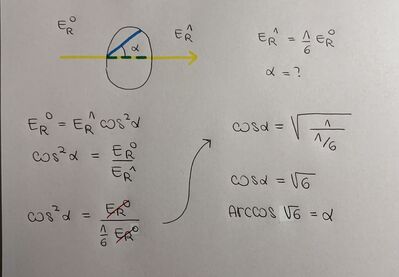 E_R^0
E_R^1
α
E_R^1 = 1/6 E_R^0
α = ?
E_R^0 = E_R^1 cos²α
cos²α = E_R^0 / E_R^1
cos²α = E_R^0 / (1/6 E_R^0)
cosα = √(1 / (1/6))
cosα = √6
Arccos √6 = α